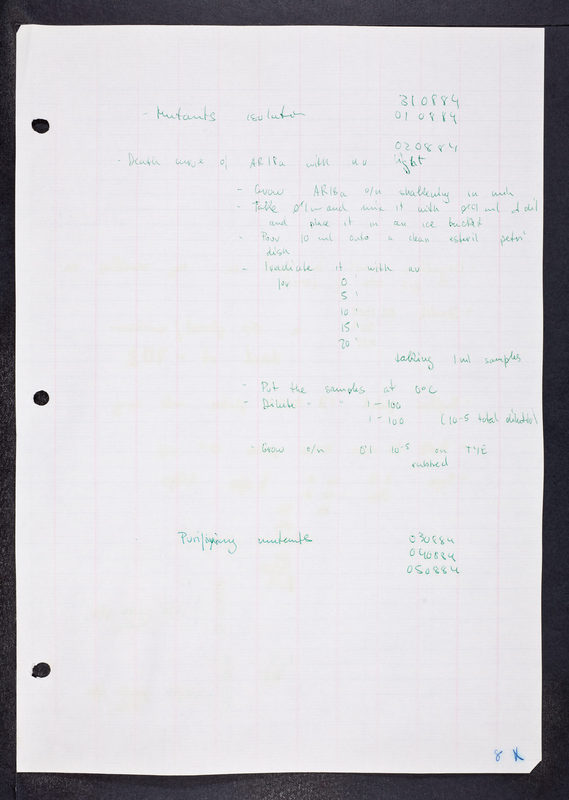 310884
- Mutants isolation 010884
020884
- Death curve of AR18a with uv light
- Grow AR18a o/n shakening in
- Take and mix it with ml of dil
and place it in an ice bucket
- Poor 10 ml onto a clean esteril petri
dish
- Irradiate it with uv
for 0'
5'
10'
15'
20'
takking 1 ml samples
- Put the samples at 0°C
- Dilute - " 1-100
1-100 (10-5 total dilution)
- Grow o/n 0'1 10-5 on TYE
rubbed
Purifying mutants 030884
040884
050884
8